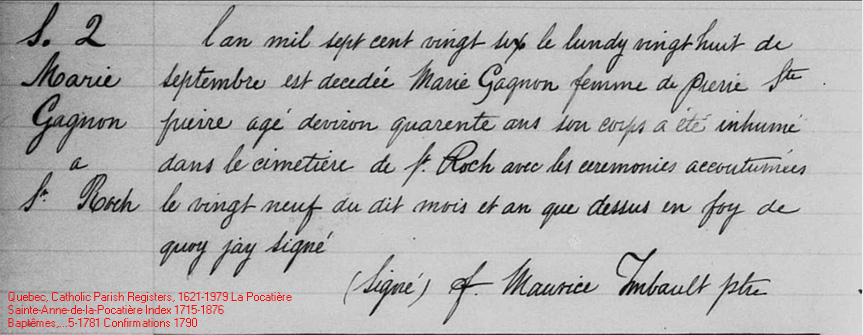 S. 2
Marie
Gagnon
a
St. Roch
lan mil sept cent vingt six le lundy vingt huit de
septembre est decedée Marie Gagnon femme de pierre Ste
pierre agé deviron quarente ans son corps a été inhumé
dans le cimetière de St. Roch avec les ceremonies accoutumées
le vingt neuf du dit mois et an que dessus en foy de
quoy jay signé
(Signé) f. Maurice Imbault ptre
Quebec, Catholic Parish Registers, 1621-1979 La Pocatière
Sainte-Anne-de-la-Pocatière Index 1715-1876
Baptêmes,...5-1781 Confirmations 1790